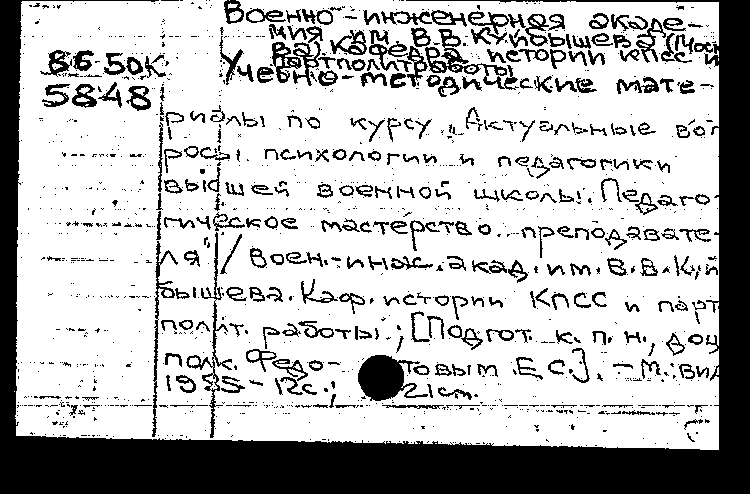 Военно-инженерная акаде-
мия им. В.В. Куйбышева (Моск
ва). Кафедра истории КПСС и
партполитработы
86-50К
5848
Учебно-методические мате-
риалы по курсу „Актуальные воп
росы психологии и педагогики
высшей военной школы. Педаго-
гическое мастерство преподавате-
ля" / Воен.-инж. акад. им. В.В. Куй
бышева. Каф. истории КПСС и парт
полит. работы ; [Подгот. к. п. н., доц
полк. Федо- товым Е.С.]. - М.: ВИ
1985 - 12с.; 21см.